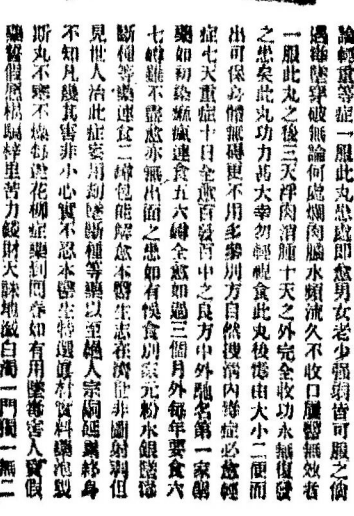 論輕重等症一服此丸患處即愈男女老少强弱皆可服之倘
遇毒墜穿破無論何處爛肉膿水頻流久不收口屢醫無效者
一服此丸之後三天肉消腫十天之外完全收功永無復發
之患矣此丸功力甚大幸勿輕視食此丸後毒由大小二便而
出可保身體無碍更不用多藥別方自然內毒症必愈輕
症七天重症十日全愈百發百中之良方中外馳名第一家醫
藥如初染瘋連食五六罇全愈如過三個月外每年要食六
七罇雖不盡愈亦無出面之患如有悞食別家元粉水銀墜毒
斷種等藥連食二罇包能解愈本醫生志在濟世非圖射利但
見世人治此症妄用刼墜斷種等藥以至絕人宗嗣延累終身
不知凡幾其害非小心實不忍本醫生特選眞材實料藥泡製
斯丸不寒不燥每遊花柳症藥到回春如有用墜毒害人賣假
藥誓假愿相騙梓里苦力錢財天誅地滅白濁一門獨一無二